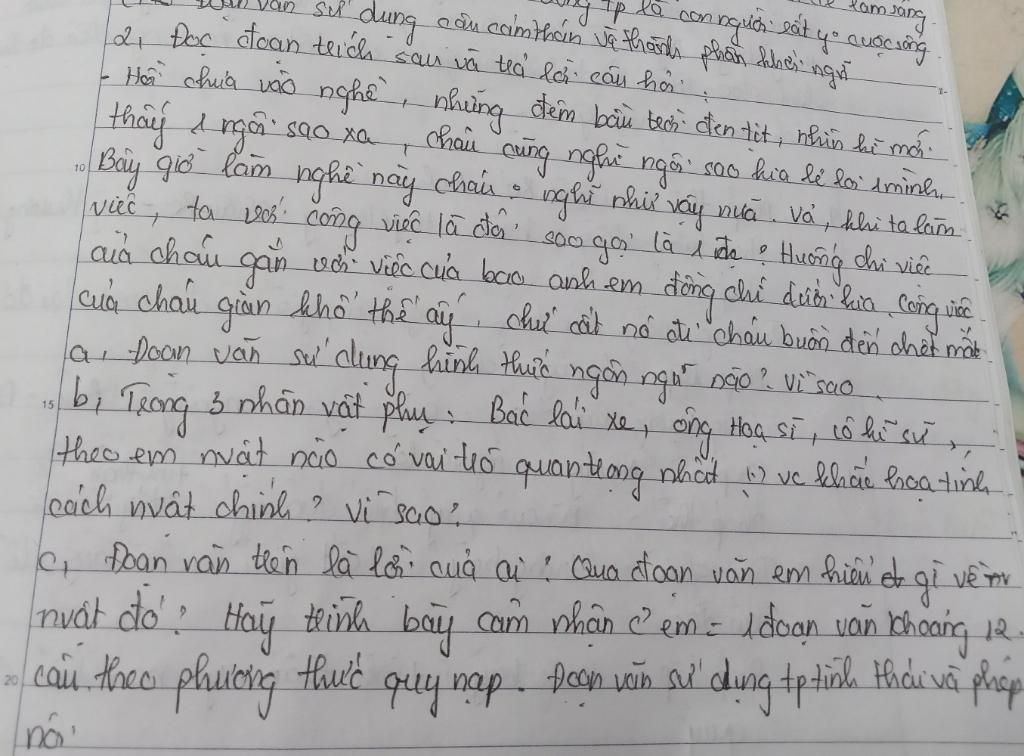 Đoạn văn sử dụng câu cảm thán và thành phần khởi ngữ
tp là con người sát y cuộc sống
2, Đọc đoạn trích sau và trả lời câu hỏi:
- Hồi chưa vào nghề, những đêm bầu trời đen tịt, nhìn kĩ mới
thấy 1 ngôi sao xa, cháu cũng nghĩ ngôi sao kia lẻ loi 1 mình,
Bây giờ làm nghề này cháu o nghĩ như vậy nữa. Vả, khi ta làm
việc, ta với công việc là đôi sao gọi là 1 đc? Huống chi việc
của cháu gắn với việc của bao anh em đồng chí dưới kia. Công việc
của cháu gian khổ thế ấy, chứ cất nó đi cháu buồn đến chết mất.
a, Đoạn văn sử dụng hình thức ngôn ngữ nào? Vì sao
b, Trong 3 nhân vật phụ: Bác lái xe, ông Hoạ sĩ, cô kĩ sư,
theo em nvật nào có vai trò quan trọng nhất vc khắc họa tính
cách nvật chính? Vì sao?
c, Đoạn văn trên là lời của ai? Qua đoạn văn em hiểu đc gì về
nvật đó? Hãy trình bày cảm nhận củ em = 1 đoạn văn khoảng 12
câu theo phương thức quy nạp. Đoạn văn sử dụng tp tình thái và phép
nối